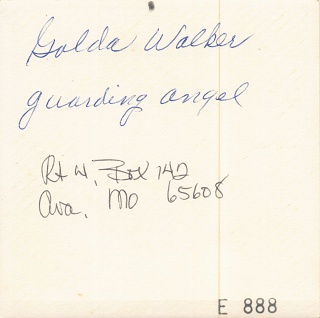 Golda Walker
guarding angel
Rt 4, Box 142
Ava, Mo 65608
E 888